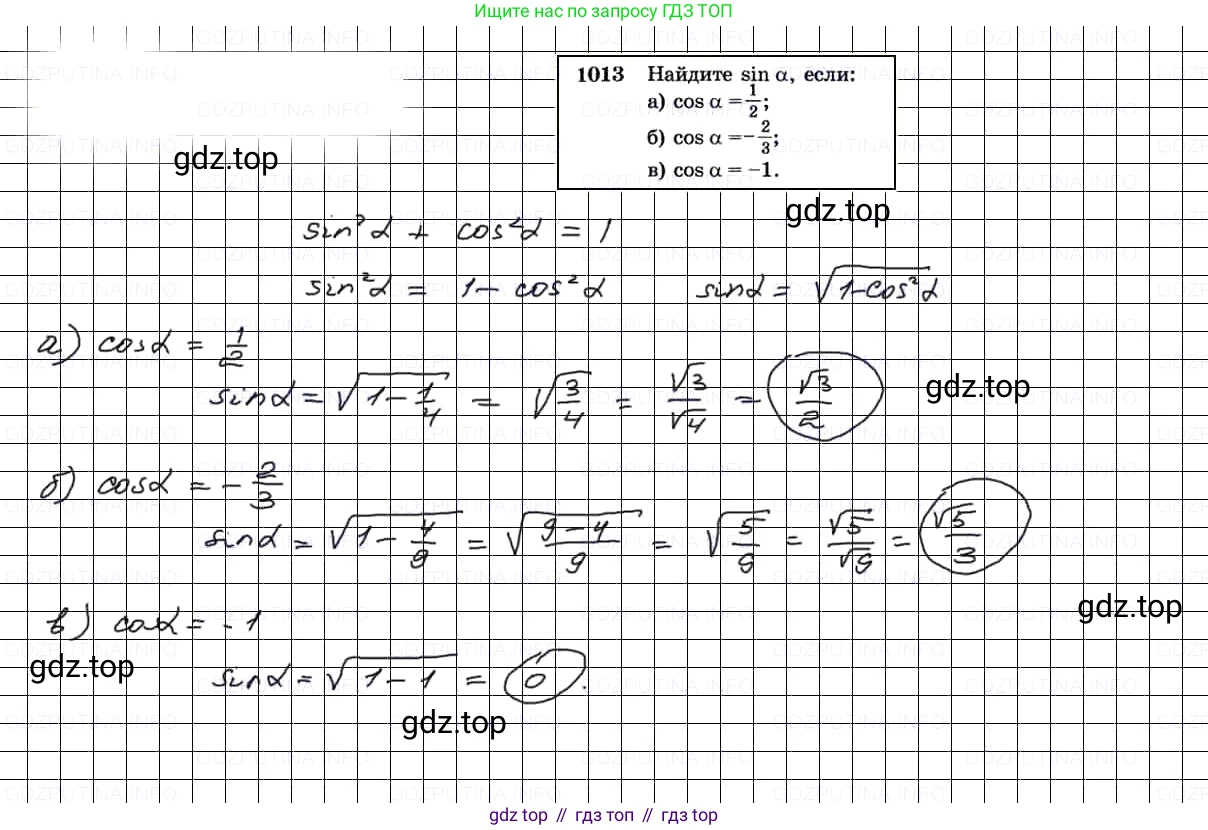 Ищите нас по запросу ГДЗ ТОП
1013 Найдите sin α, если:
а) cos α = 1/2;
б) cos α = -2/3;
в) cos α = -1.
gdz.top
gdz.top
sin²α + cos²α = 1
sin²α = 1 - cos²α sinα = √(1-cos²α)
а) cosα = 1/2
sinα = √(1 - 1/4) = √(3/4) = √3/√4 = √3/2
gdz.top
б) cosα = -2/3
sinα = √(1 - 4/9) = √((9-4)/9) = √(5/9) = √5/√9 = √5/3
gdz.top
в) cosα = -1
gdz.top
sinα = √(1-1) = 0.
gdz.top
GDZPUTINA.INFO
gdz top // гдз топ // gdz top